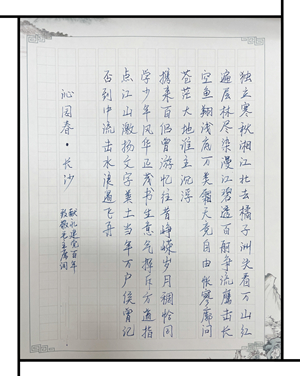 独立寒秋湘江北去橘子洲头看万山红
遍层林尽染漫江碧透百舸争流鹰击长
空鱼翔浅底万类霜天竞自由怅寥廓问
苍茫大地谁主沉浮
携来百侣曾游忆往昔峥嵘岁月稠恰同
学少年风华正茂书生意气挥斥方遒指
点江山激扬文字粪土当年万户侯曾记
否到中流击水浪遏飞舟
沁园春·长沙
献礼建党百年
致敬毛主席词